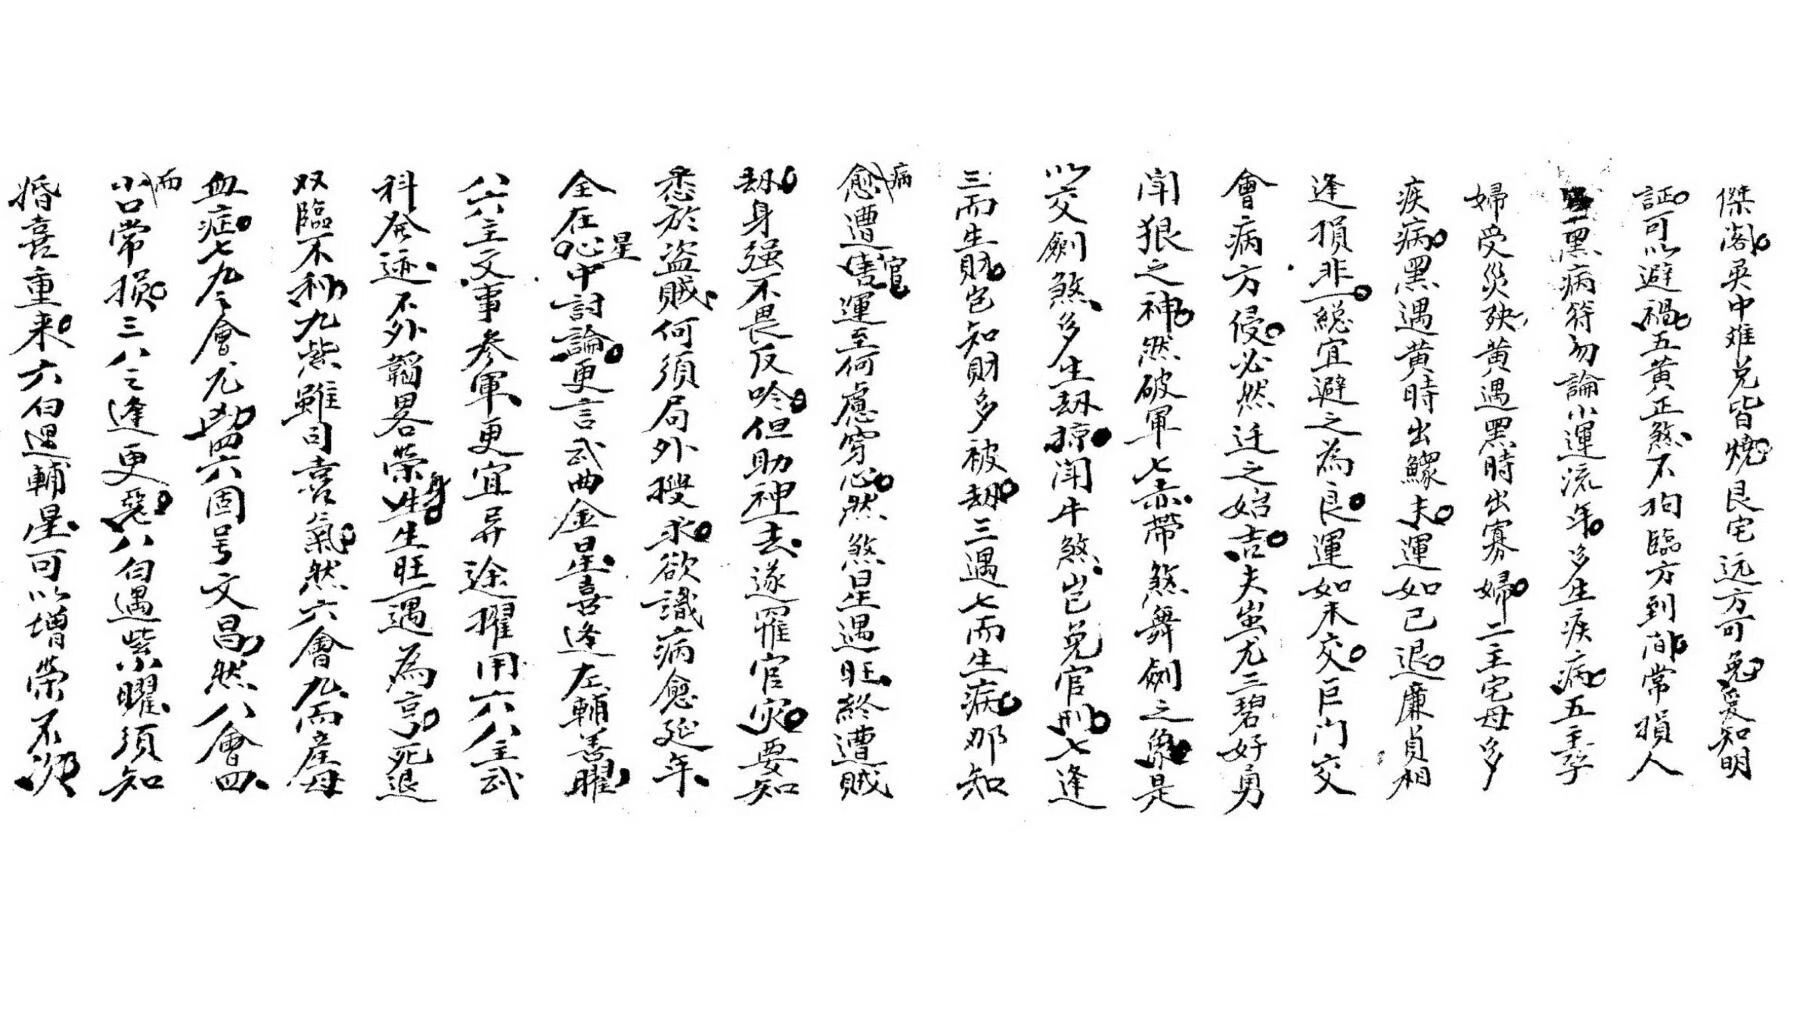 傑阁巽中难兑皆燒艮宅远方可免爰知明
証可以避禍五黄正煞不拘臨方到间常損人
二黑病符勿論小運流年多生疾病五主孕
婦受災殃黄遇黑時出寡婦二主宅母多
疾病黑遇黄時出鰥夫運如已退廉貞相
逢損非一総宜避之為良運如未交巨门交
會病方侵必然迁之始吉夫蚩尤三碧好勇
闘狠之神然破軍七赤帶煞舞劍之象是
以交劍煞多生刼掠闘牛煞岂免官刑七逢
三而生財岂知財多被刼三遇七而生病那知
病愈遭官運至何慮穿心然煞星遇旺終遭賊
刼身强不畏反吟但助神去遂罹官灾要知
悉於盗賊何須局外搜求欲識病愈延年
全在星中討論更言武曲金星喜逢左輔善曜
六八主文事参軍更宜异途擢用六八主武
科發迹不外韜畧荣身生旺一遇為亨死退
双臨不利九紫雖司喜氣然六會九而產母
血症七九之會尤凶四六固号文昌然八會四
而小口常損三八之逢更惡八白遇紫曜須知
婚喜重来六白遇輔星可以增荣不次